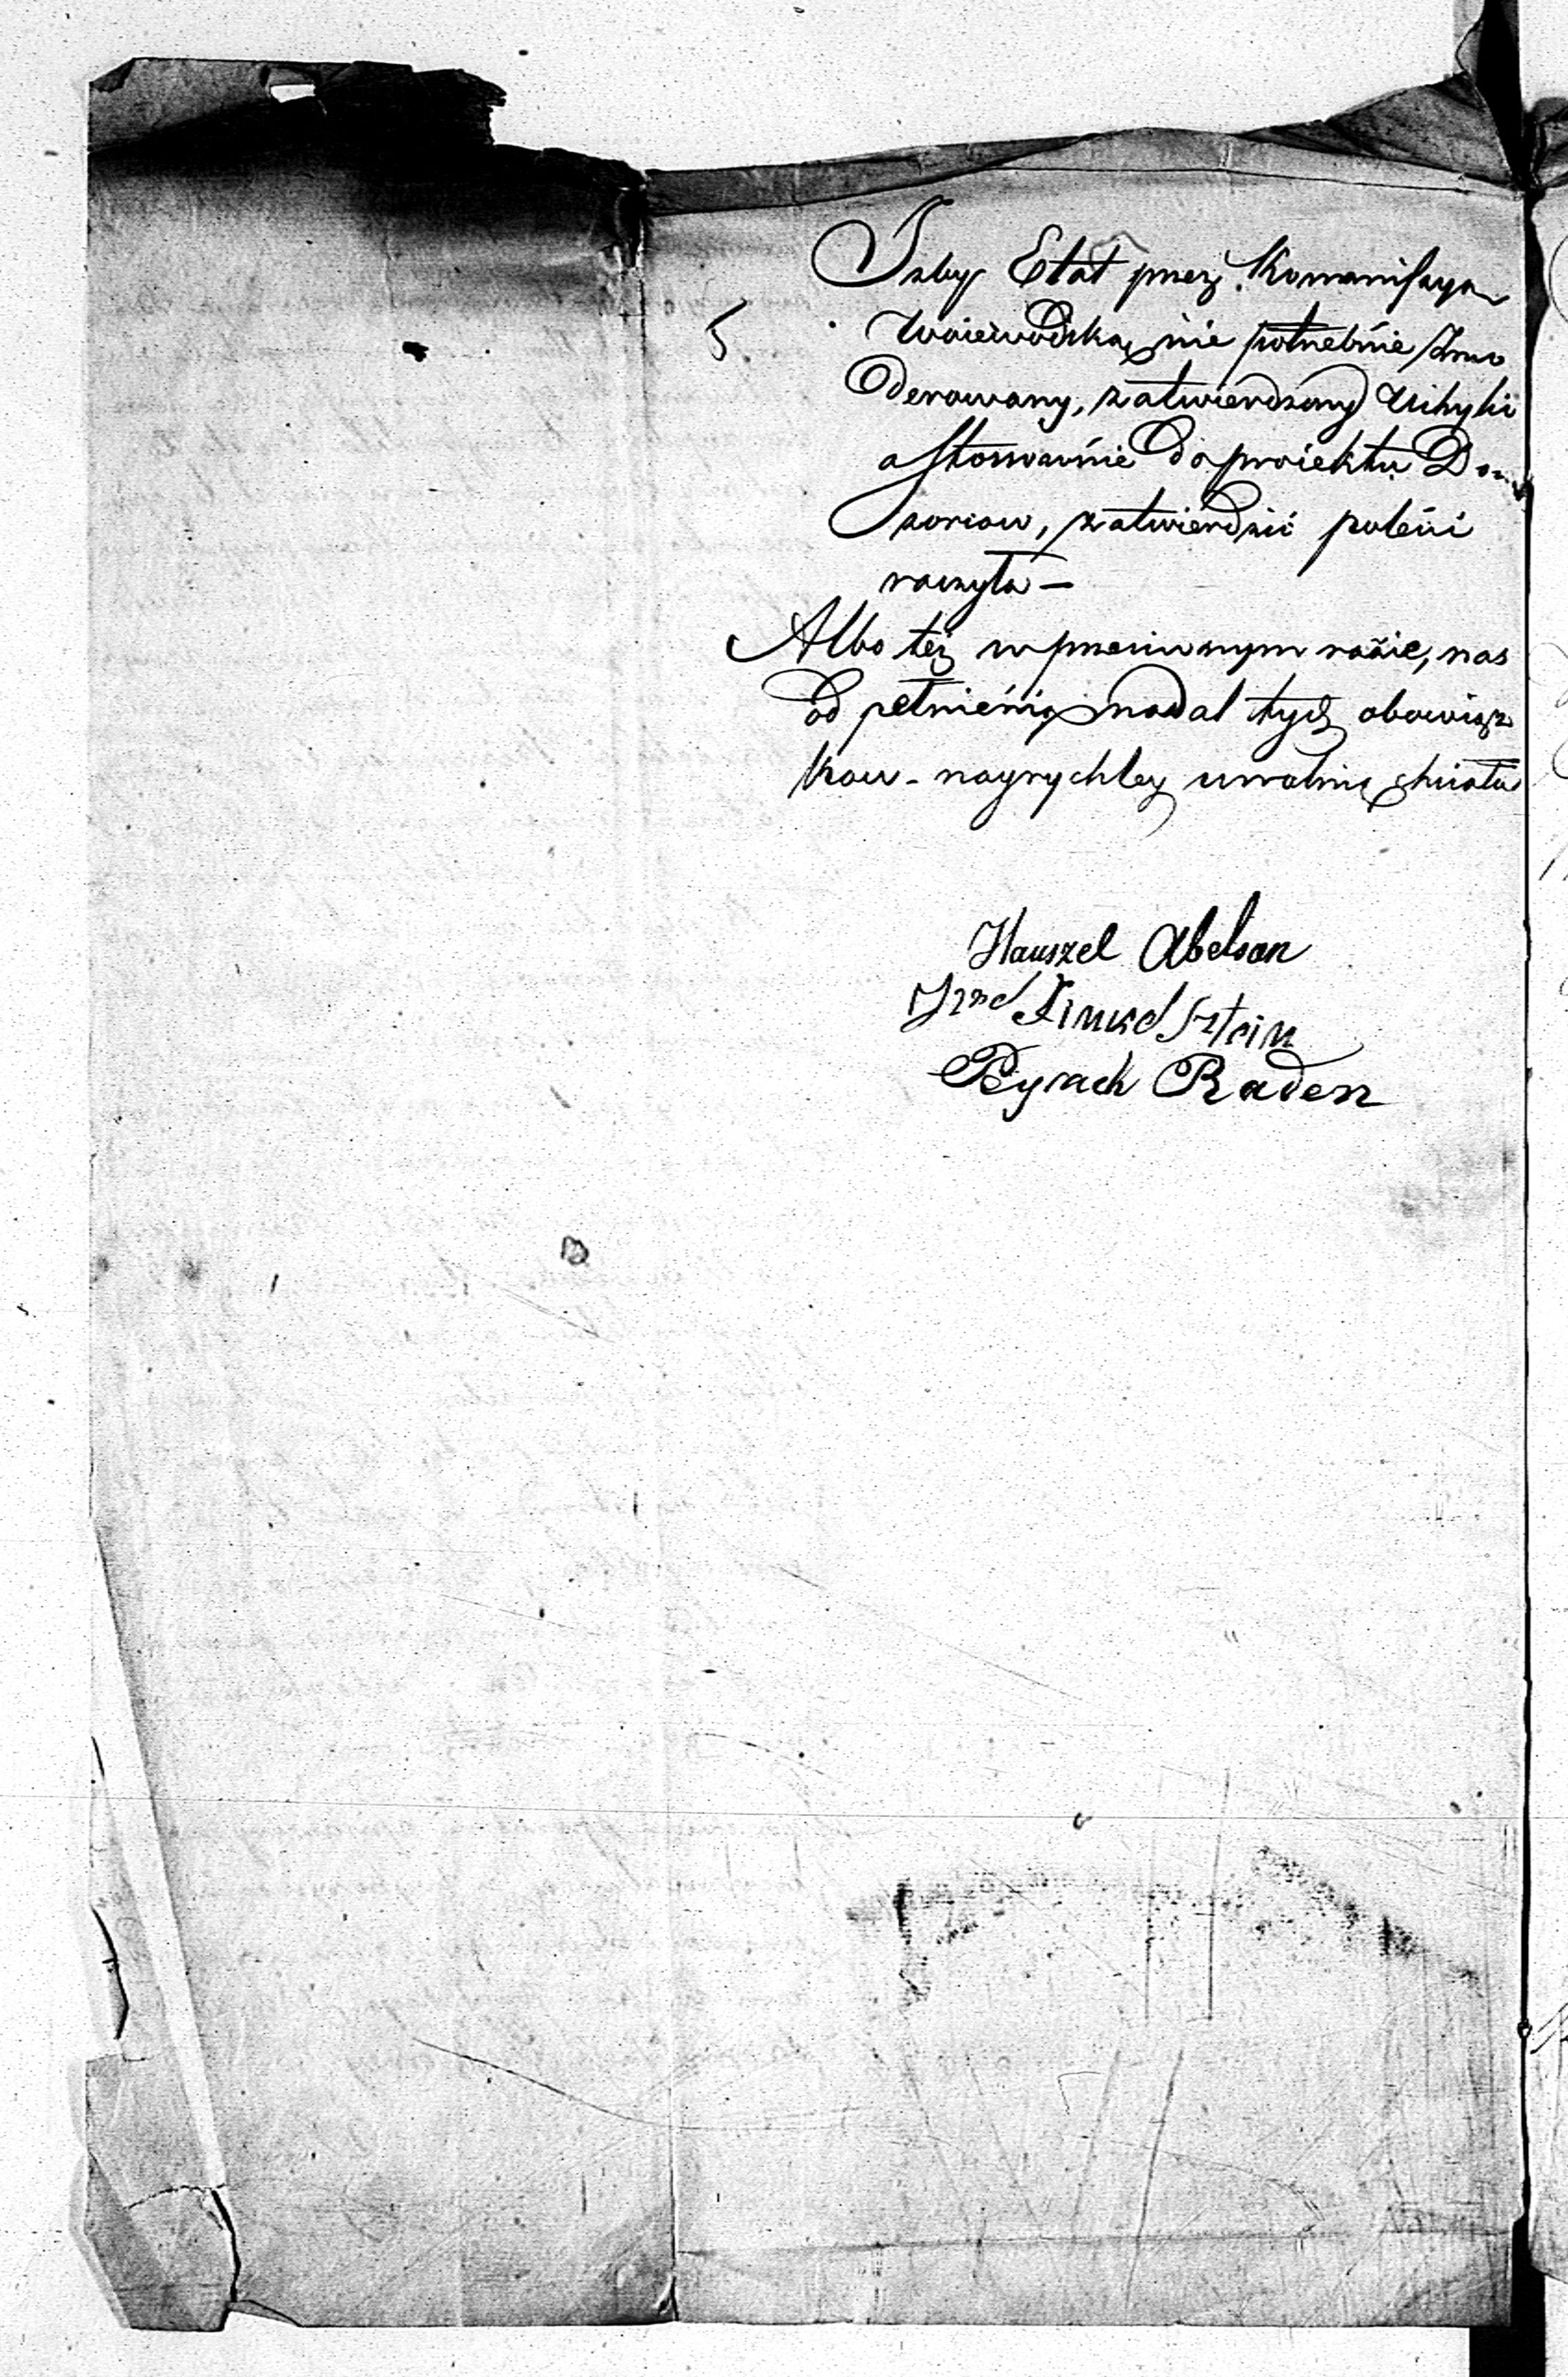 Izby Etat przez Kommissyą
5 Woiewodzką nie potrzebnie zmo
derowany, zatwierdzony Uchylić
a stosownie do proiektu Do
zorców, zatwierdzić polecić
raczyła —
Albo też w przeciwnym razie, nas
od pełnienia nadal tych obowiąz
kow - nayrychley uwolnić chciała
Hauszel Abelson
Finkelsztein
Peysach Raden